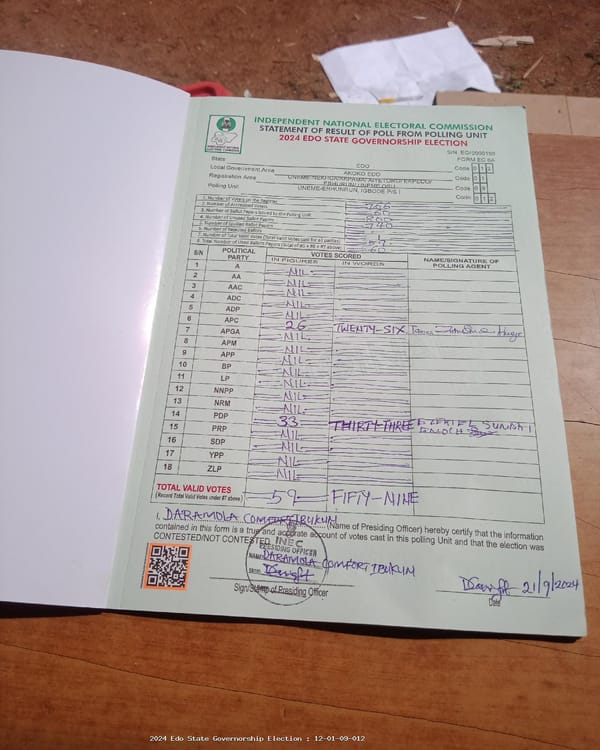 INDEPENDENT NATIONAL ELECTORAL COMMISSION
STATEMENT OF RESULT OF POLL FROM POLLING UNIT
2024 EDO STATE GOVERNORSHIP ELECTION
FORM EC 8A
State EDO Code 12
Local Government Area AKOKO EDO Code 01
Registration Area Code 09
Polling Unit UNEME-ERHUNRUN, IGBODE P/S I Code 012
1. Number of Voters on the Register
2. Number of Accredited Voters
3. Number of Ballot Papers Issued to the Polling Unit
4. Number of Unused Ballot Papers
5. Number of Spoiled Ballot Papers
6. Number of Rejected Ballots
7. Number of Total Valid Votes (Total Valid Votes cast for all parties)
8. Total Number of Used Ballot Papers (Total of #5 + #6 + #7 above)
S/N POLITICAL PARTY VOTES SCORED NAME/SIGNATURE OF POLLING AGENT
IN FIGURES IN WORDS
1 A NIL
2 AA NIL
3 AAC NIL
4 ADC NIL
5 ADP NIL
6 APC 26 TWENTY-SIX
7 APGA NIL
8 APM NIL
9 APP NIL
10 BP NIL
11 LP NIL
12 NNPP NIL
13 NRM NIL
14 PDP 33 THIRTY-THREE SUNDAY ENOCH
15 PRP NIL
16 SDP NIL
17 YPP NIL
18 ZLP NIL
TOTAL VALID VOTES 59 FIFTY-NINE
(Record Total Valid Votes under #7 above)
I, DARAMOLA COMFORT IBUKUN (Name of Presiding Officer) hereby certify that the information
contained in this form is a true and accurate account of votes cast in this polling Unit and that the election was
CONTESTED/NOT CONTESTED
INEC
PRESIDING OFFICER
NAME DARAMOLA COMFORT IBUKUN
SIGN
Sign/Stamp of Presiding Officer
21/9/2024
Date
2024 Edo State Governorship Election : 12-01-09-012